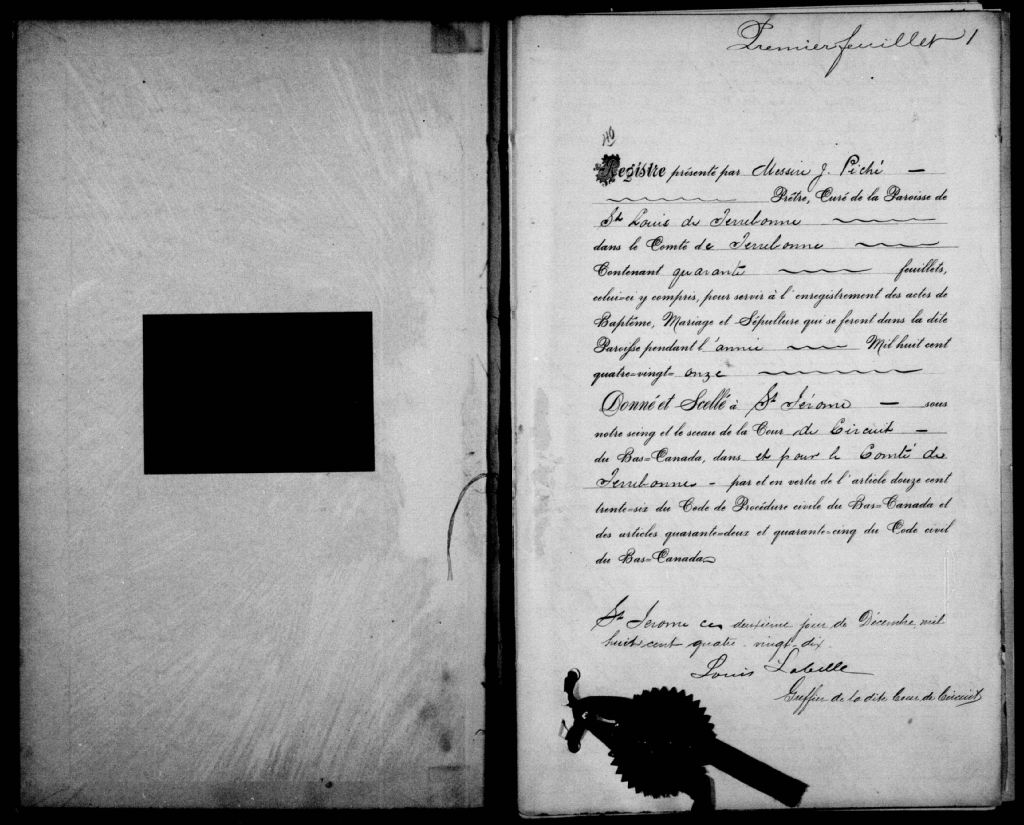 Premier feuillet 1
Registre présenté par Messire J. Piché
Prêtre, Curé de la Paroisse de
St Louis de Terrebonne
dans le Comté de Terrebonne
Contenant quarante feuillets,
celui-ci y compris, pour servir à l'enregistrement des actes de
Baptême, Mariage et Sépulture qui se feront dans la dite
Paroisse pendant l'année Mil huit cent
quatre=vingt= onze
Donné et Scellé à St Jérome sous
notre seing et le sceau de la Cour de Circuit
du Bas=Canada, dans et pour le Comté de
Terrebonne - par et en vertu de l'article douze cent
trente=six du Code de Procédure civile du Bas=Canada et
des articles quarante=deux et quarante=cinq du Code civil
du Bas=Canada
St Jerome ce deuxième jour de Décembre mil
huit cent quatre-vingt-dix
Louis Labelle
Greffier de la dite Cour de Circuit